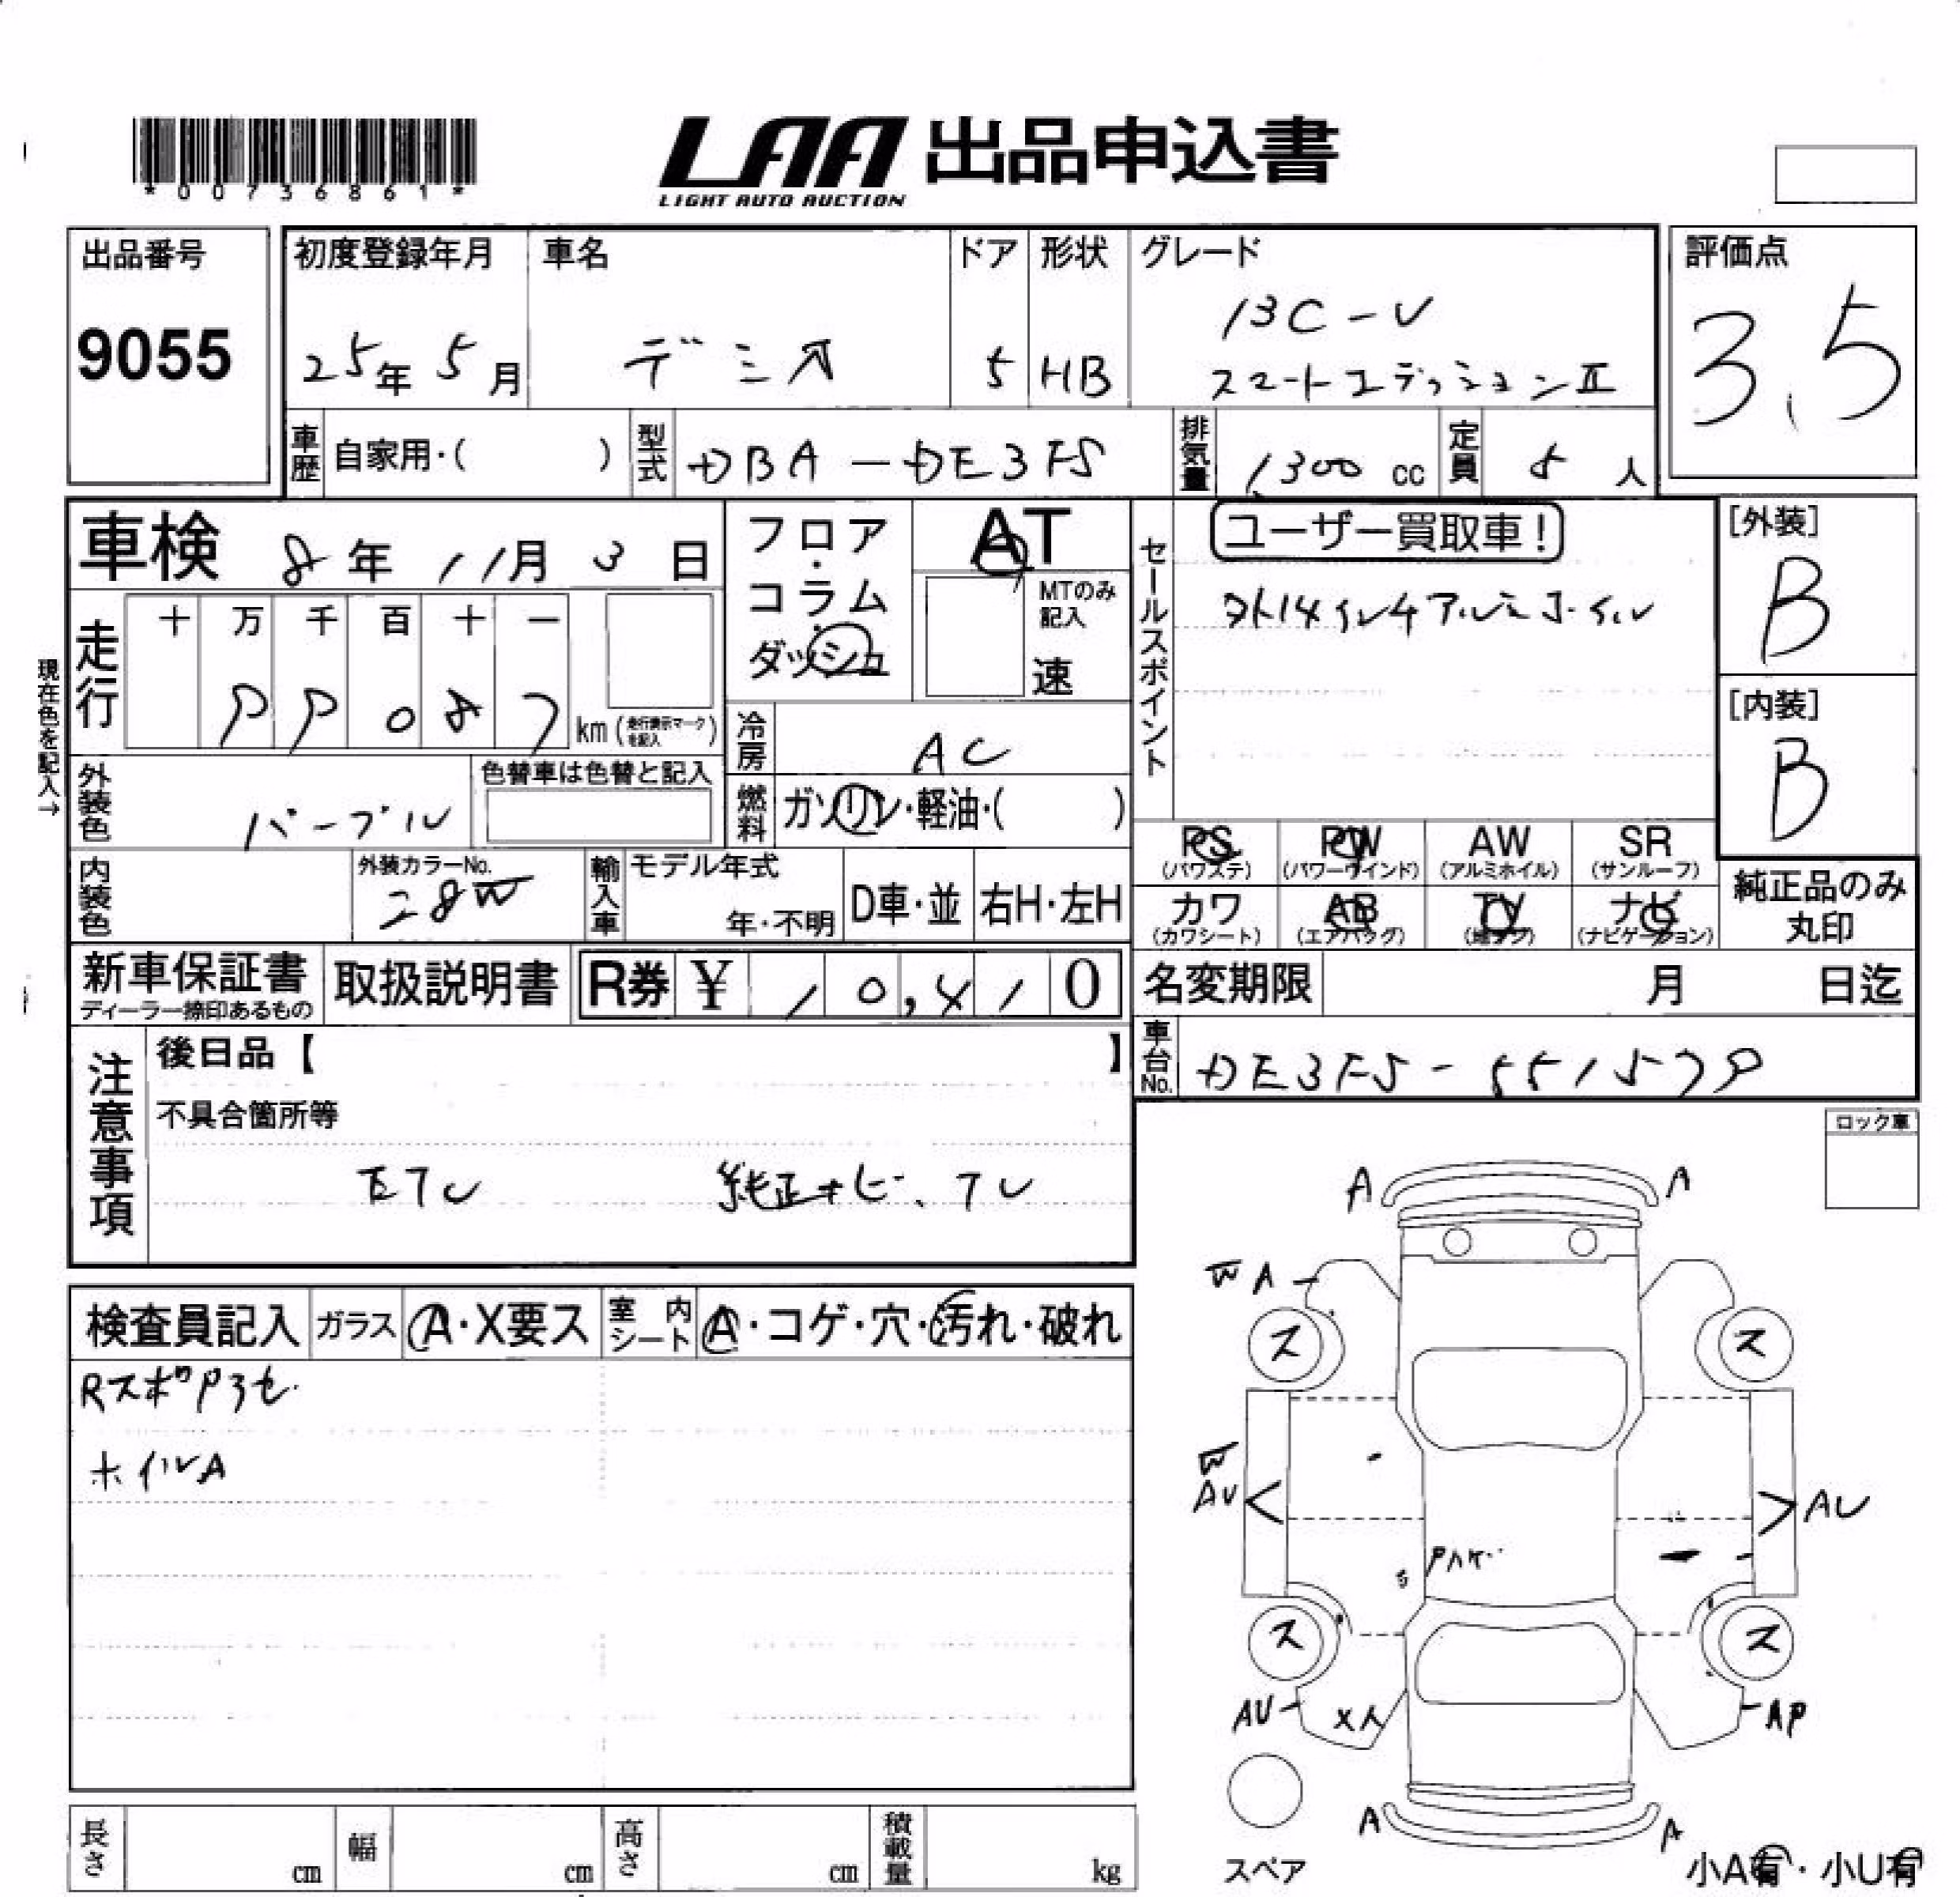 *00736861*
LAA 出品申込書
LIGHT AUTO AUCTION
出品番号
9055
初度登録年月
25年 5月
車名
デミオ
ドア
5
形状
HB
グレード
13C-V
スマートエディションⅡ
評価点
3.5
車歴 自家用・( )
型式 DBA-DE3FS
排気量 1,300 cc
定員 5 人
車検 8年 11月 3日
フロア・コラム・ダッシュ
AT
MTのみ記入
速
セールスポイント
ユーザー買取車!
[外装]
B
現在色を記入→
走行
十 万 千 百 十 一
9 9 0 8 7 km(走行表示マークを記入)
[内装]
B
冷房 AC
外装色 パープル
色替車は色替と記入
燃料 ガソリン・軽油・( )
PS (パワステ)
PW (パワーウインド)
AW (アルミホイル)
SR (サンルーフ)
内装色
外装カラーNo.
28W
輸入車
モデル年式
年・不明
D車・並
右H・左H
カワ (カワシート)
AB (エアバッグ)
TV (地デジ)
ナビ (ナビゲーション)
純正品のみ丸印
新車保証書
ディーラー捺印あるもの
取扱説明書
R券 ¥ 10,410
名変期限 月 日迄
車台No. DE3FS-551579
注意事項
後日品【 】
不具合箇所等
ETC 純正ナビ、TV
ロック車
検査員記入
ガラス A・X要ス
室内シート A・コゲ・穴・汚れ・破れ
Rスポ
ホイルA
A A
W A
ス ス
W
AU AU
ス ス
AU X AP
A A
スペア
小A有・小U有
長さ cm
幅 cm
高さ cm
積載量 kg